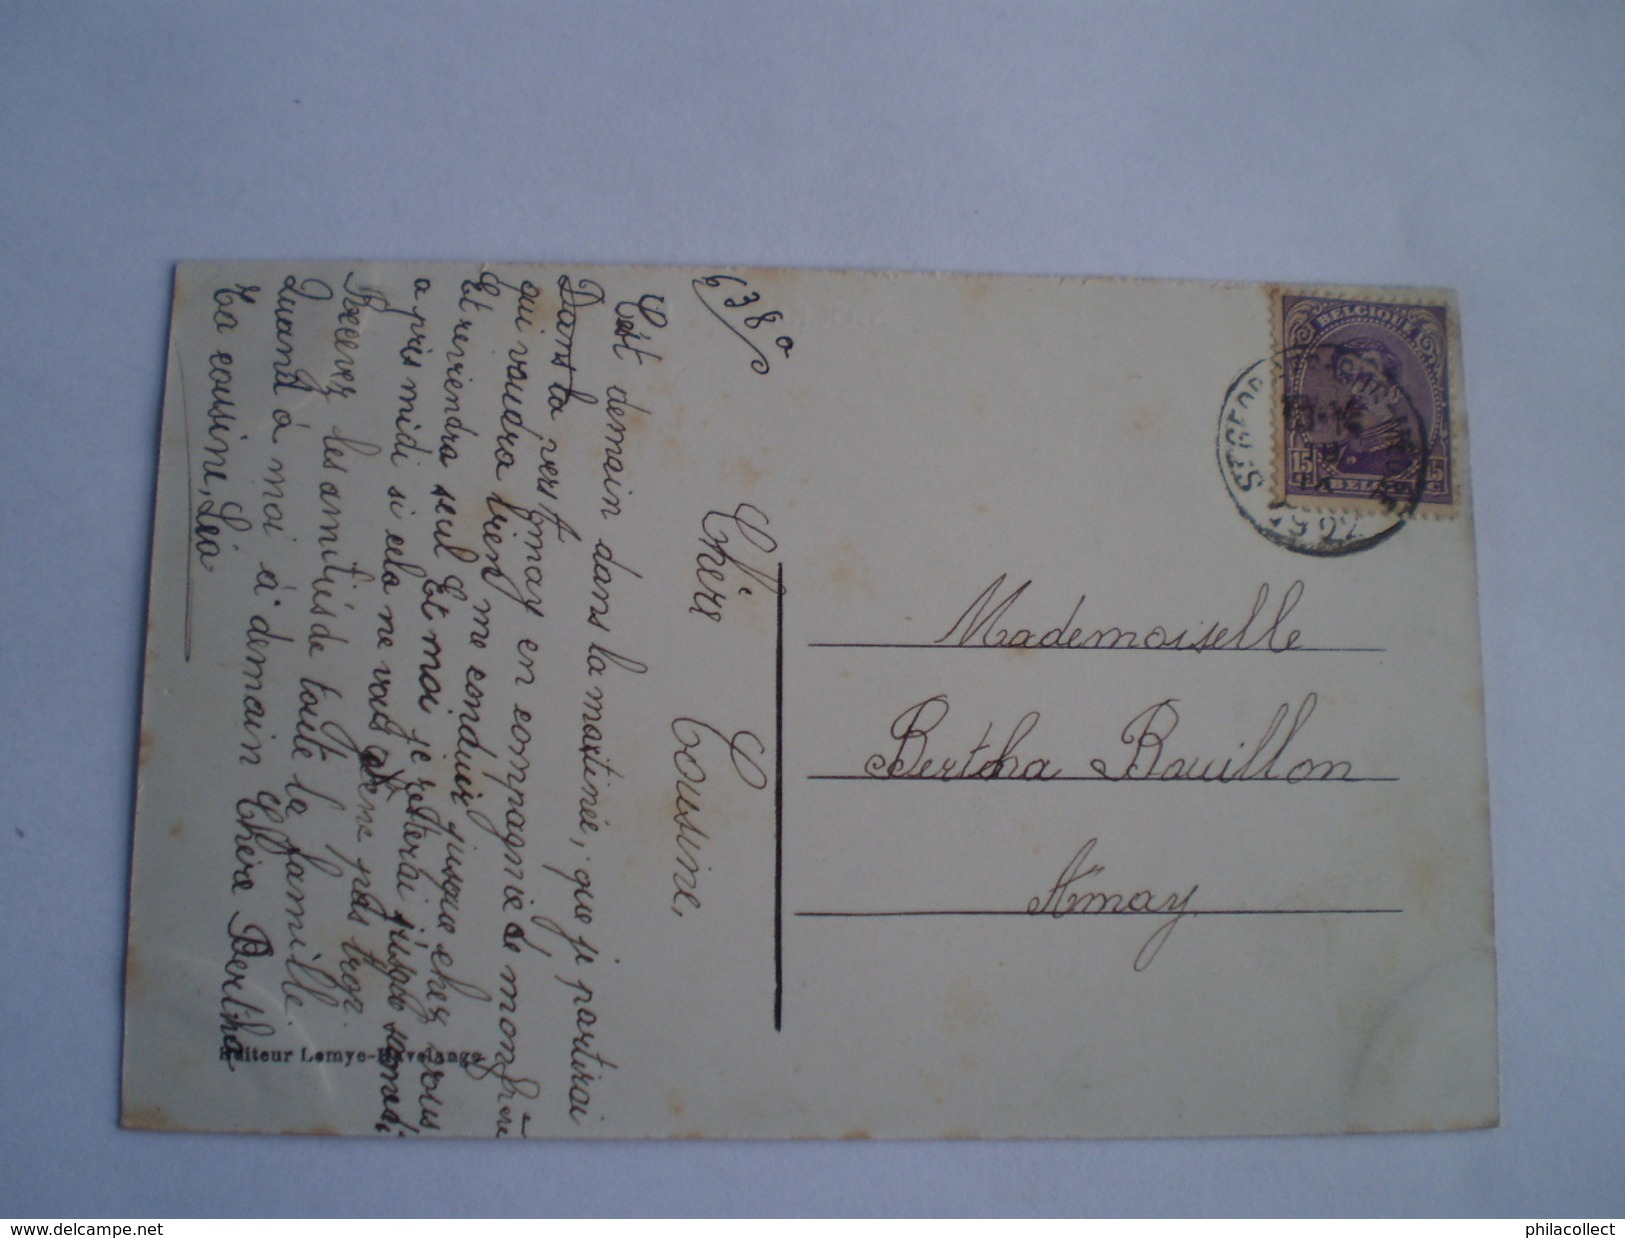 6380
Chère Cousine,
C'est demain dans la matinée, que je partirai
Dans la vers Amay en compagnie de mon frère
qui voudra bien me conduire jusque chez vous
Et reviendra seul Et moi je resterai jusque samedi
après midi si cela ne vous gène pas trop.
Recevez les amitiés de toute la famille
Quand à moi à demain Chère Bertha
Ta cousine, Léa
Editeur Lemye-Havelange
BELGIQUE
15 C 15 C
BELGIË
Mademoiselle
Bertha Bouillon
Amay
www.delcampe.net
philacollect